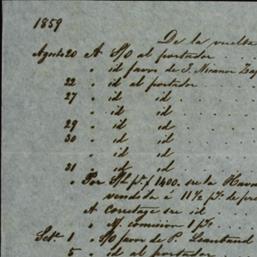 1859
De la vuelta
Agosto 20 A S/O al portador
" id favor de J. Nicanor
22 " id al portador
27 " id id
" id id
29 " id id
30 " id id
" id id
31 " id id
" Por S/L pr $ 1400. su la Hav
vendita à 11½ p% de pre
A Corretage su id
" M. comision 1 p%
Setb. 1 " S/O favor de P.
5 " id al portador